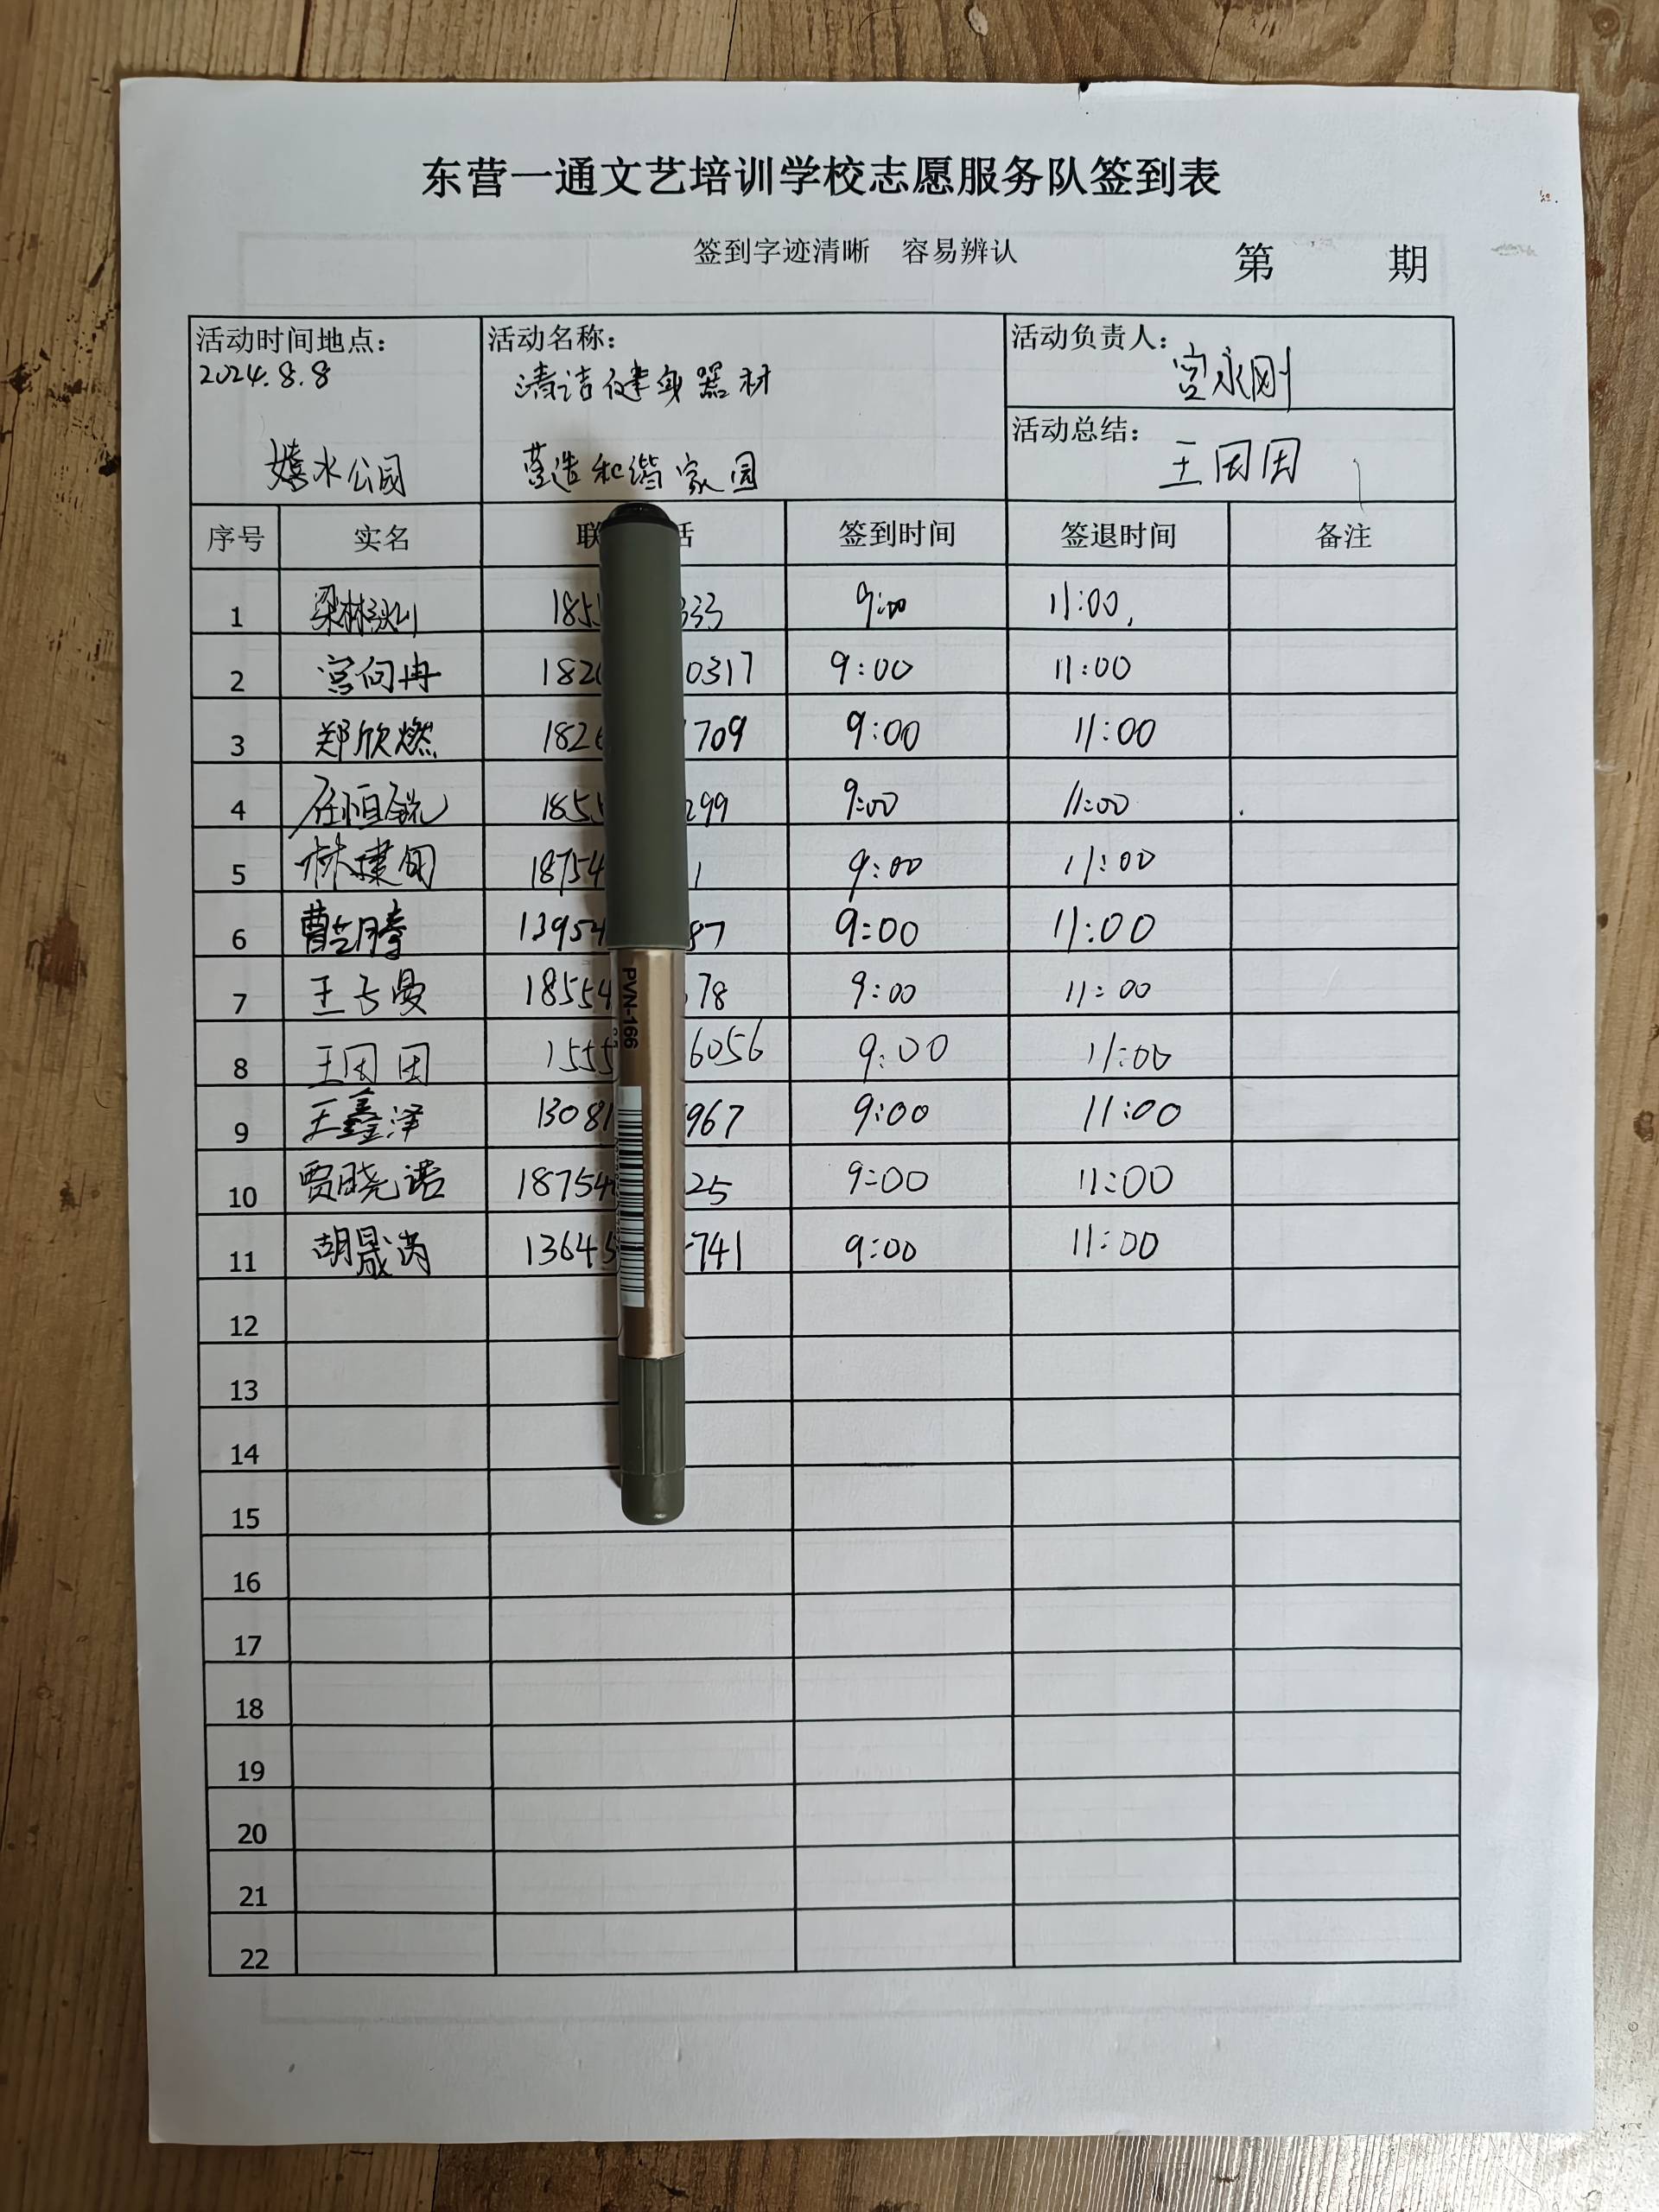 东营一通文艺培训学校志愿服务队签到表
签到字迹清晰 容易辨认
第 期
活动时间地点: 活动名称: 活动负责人:
2024.8.8 清洁健身器材 宫永刚
活动总结:
水公园 营造和谐家园 王因因
序号 实名 联 话 签到时间 签退时间 备注
1 185 333 9:00 11:00
2 宫向冉 182 0317 9:00 11:00
3 郑欣燃 182 709 9:00 11:00
4 任恒锐 185 299 9:00 11:00
5 林 18754 1 9:00 11:00
6 曹 1395 87 9:00 11:00
7 王子曼 18554 78 9:00 11:00
8 王因因 155 6056 9:00 11:00
9 王鑫泽 1308 967 9:00 11:00
10 贾晓诺 18754 25 9:00 11:00
11 胡晟 1364 741 9:00 11:00
12
13
14
15
16
17
18
19
20
21
22
PVN-166